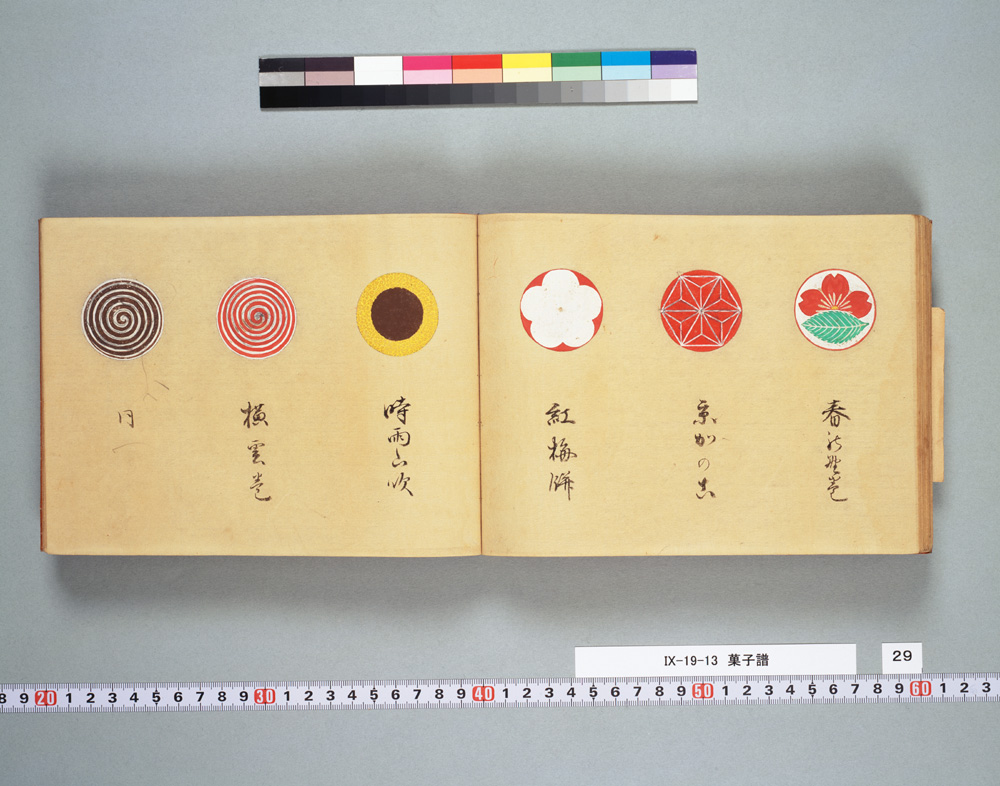 春の野巻
京かのこ
紅梅餅
時雨山吹
横雲巻
同
IX-19-13 菓子譜
29
8 9 20 1 2 3 4 5 6 7 8 9 30 1 2 3 4 5 6 7 8 9 40 1 2 3 4 5 6 7 8 9 50 1 2 3 4 5 6 7 8 9 60 1 2 3